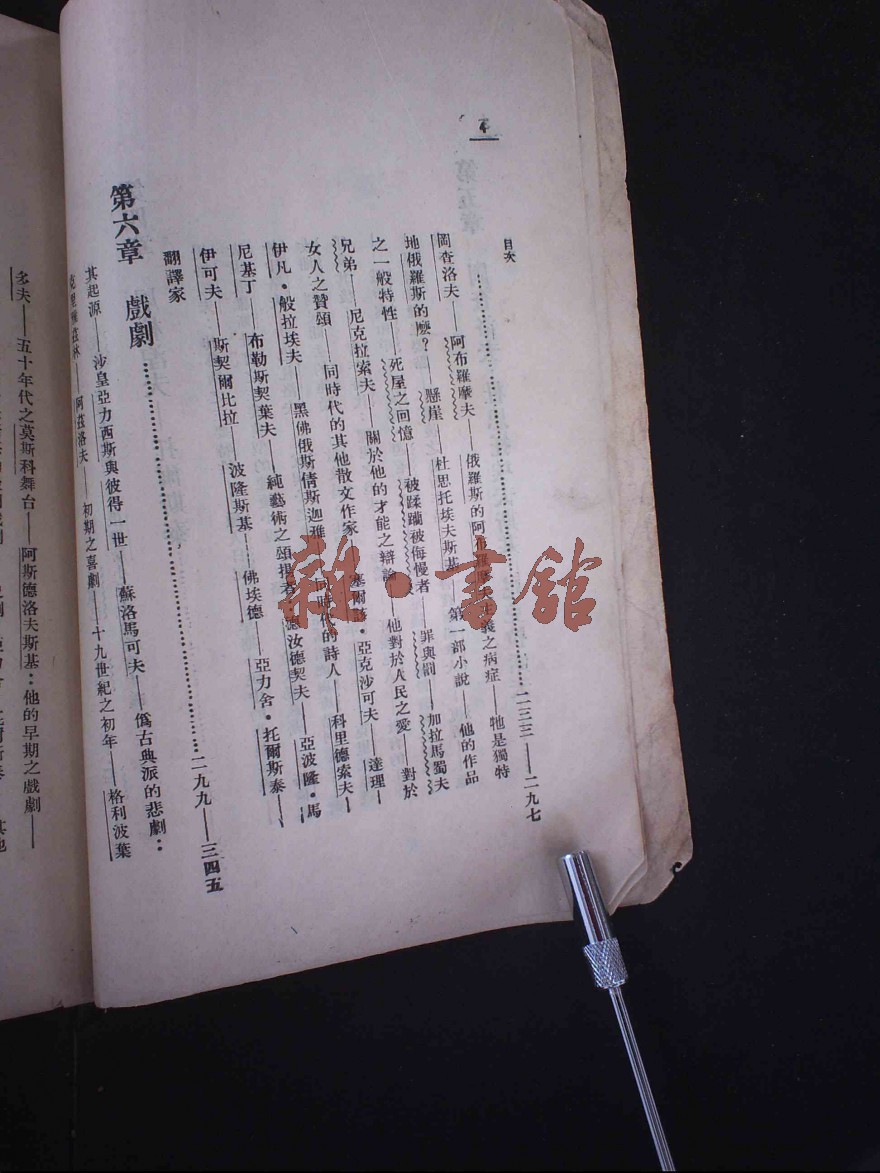 目次
……二三三——二九七
岡查洛夫——阿布羅摩夫——俄羅斯的阿布羅摩夫主義之病症——牠是獨特
地俄羅斯的麽?——懸崖——杜思托埃夫斯基——第一部小說——他的作品
之一般特性——死屋之回憶——被蹂躪被侮慢者——罪與罰——加拉馬蜀夫
兄弟——尼克拉索夫——關於他的才能之辯論——他對於人民之愛——對於
女人之贊頌——同時代的其他散文作家——塞爾該·亞克沙可夫——達理——
伊凡·般拉埃夫——黑佛俄斯倩斯迦雅——同時代的詩人——科里德索夫——
尼基丁——布勒斯契葉夫——純藝術之頌揚者——德汝德契夫——亞波隆·馬
伊可夫——斯契爾比拉——波隆斯基——佛埃德——亞力舍·托爾斯泰——
翻譯家
第六章 戲劇……二九九——三四五
其起源——沙皇亞力西斯與彼得一世——蘇洛馬可夫——僞古典派的悲劇:
阿茲洛夫——初期之喜劇——十九世紀之初年——格利波葉
多夫——五十年代之莫斯科舞台——阿斯德洛夫斯基:他的早期之戲劇——
雜·書館